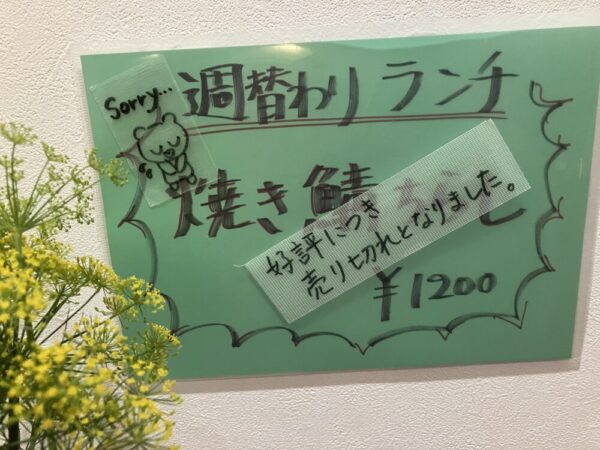 Sorry...
週替わりランチ
焼き鯖
好評につき
売り切れとなりました。
¥1200